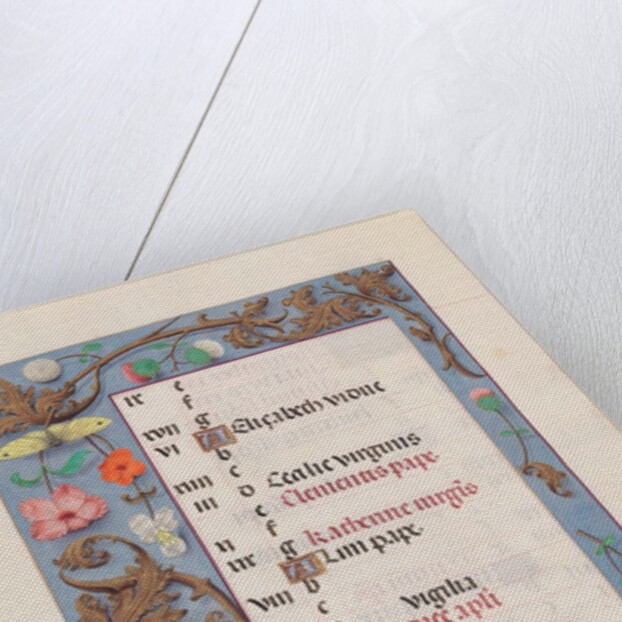 ix e
f
xvii g
vi A Elizabeth vidue
b
xiiii c
iii d Cecilie virginis
e Clementis pape.
xi f
xix g Katherine virgis
A Lini pape.
viii b
c
vigilia
apli